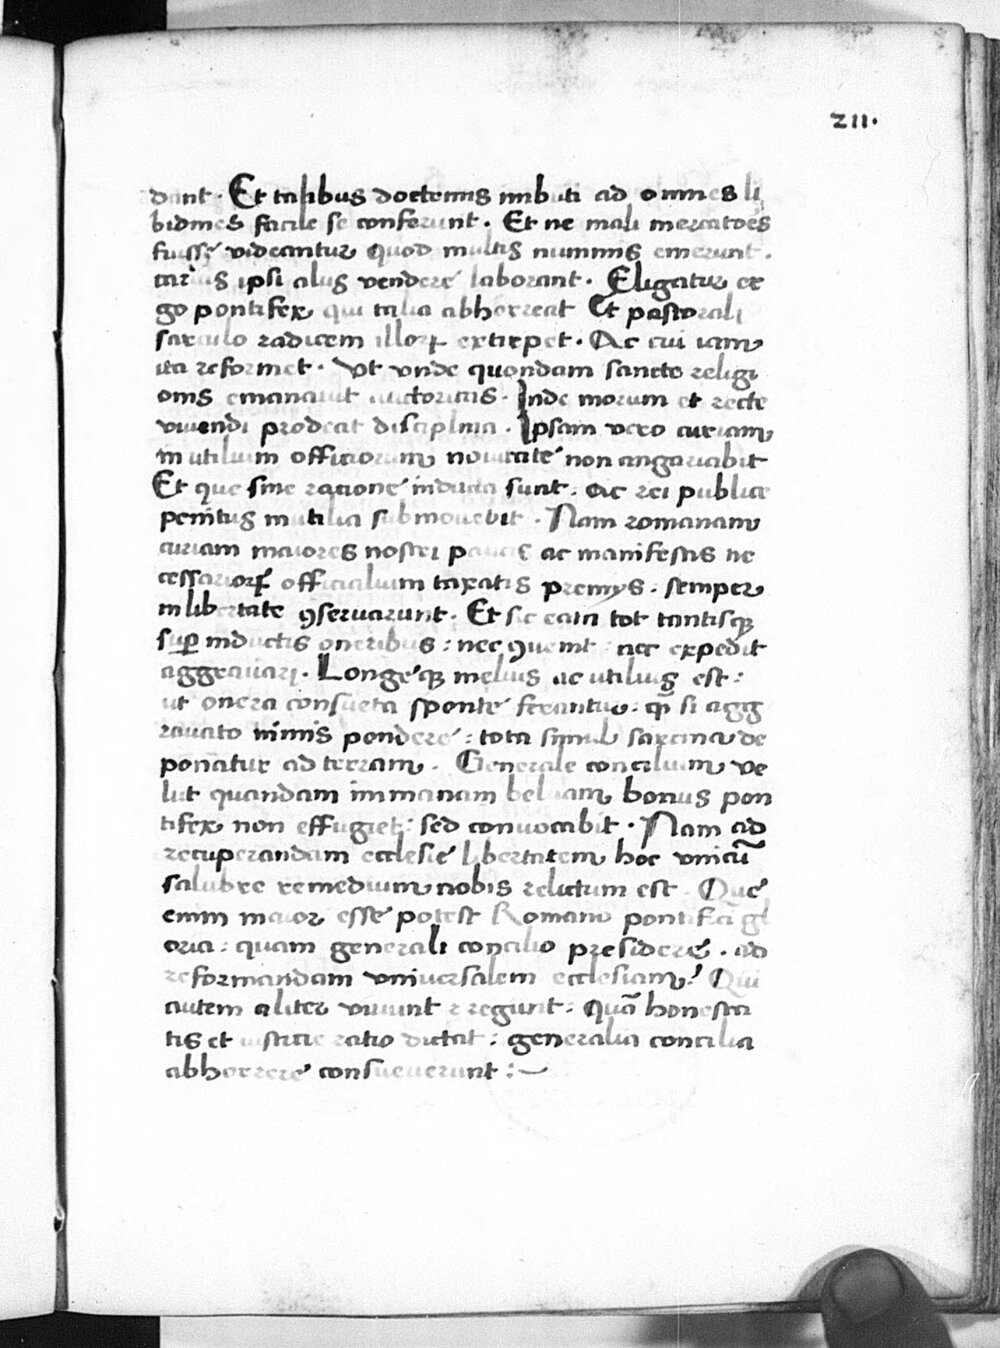 211.
dant. Et talibus doctrinis imbuti ad omnes li
bidines facile se conferunt. Et ne mali mercatores
fuisse videantur quod multis nummis emerunt.
carius ipsi alus vendere laborant. Eligatur er
go pontifex qui talia abhorreat Et pastorali
sarculo radicem illoꝝ extirpet. Ac cui iam
ita reformet. Vt vnde quondam sancte religi
onis emanavit auctoritas. Inde morum et recte
vivendi prodeat disciplina. Ipsam vero curiam
inutilium officiorum novitate non angariabit
Et que sine ratione inducta sunt. ac rei publice
penitus inutilia submovebit. Nam romanam
curiam maiores nostri paucis ac manifestis ne
cessarioꝝ officialium taxatis premys. semper
in libertate ꝯservarunt. Et sic eam tot tantisqꝫ
suꝑ inductis oneribus: nec ꝯvenit: nec expedit
aggravari. Longeqꝫ melius ac utilius est:
ut onera consueta sponte ferantur. qȝ si agg
ravato nimis pondere: tota simul sarcina de
ponatur ad terram. Generale concilium ve
lut quandam immanam beluam bonus pon
tifex non effugiet: sed convocabit. Nam ad
recuperandam ecclesie libertatem hoc vnicū
salubre remedium nobis relictum est. Que
enim maior esse potest Romano pontifici gl
oria: quam generali concilio presidere. ad
reformandam vniversalem ecclesiam? Qui
autem aliter vivunt ⁊ regunt: Quā honesta
tis et iustitie ratio dictat: generalia concilia
abhorrere consueverunt:—